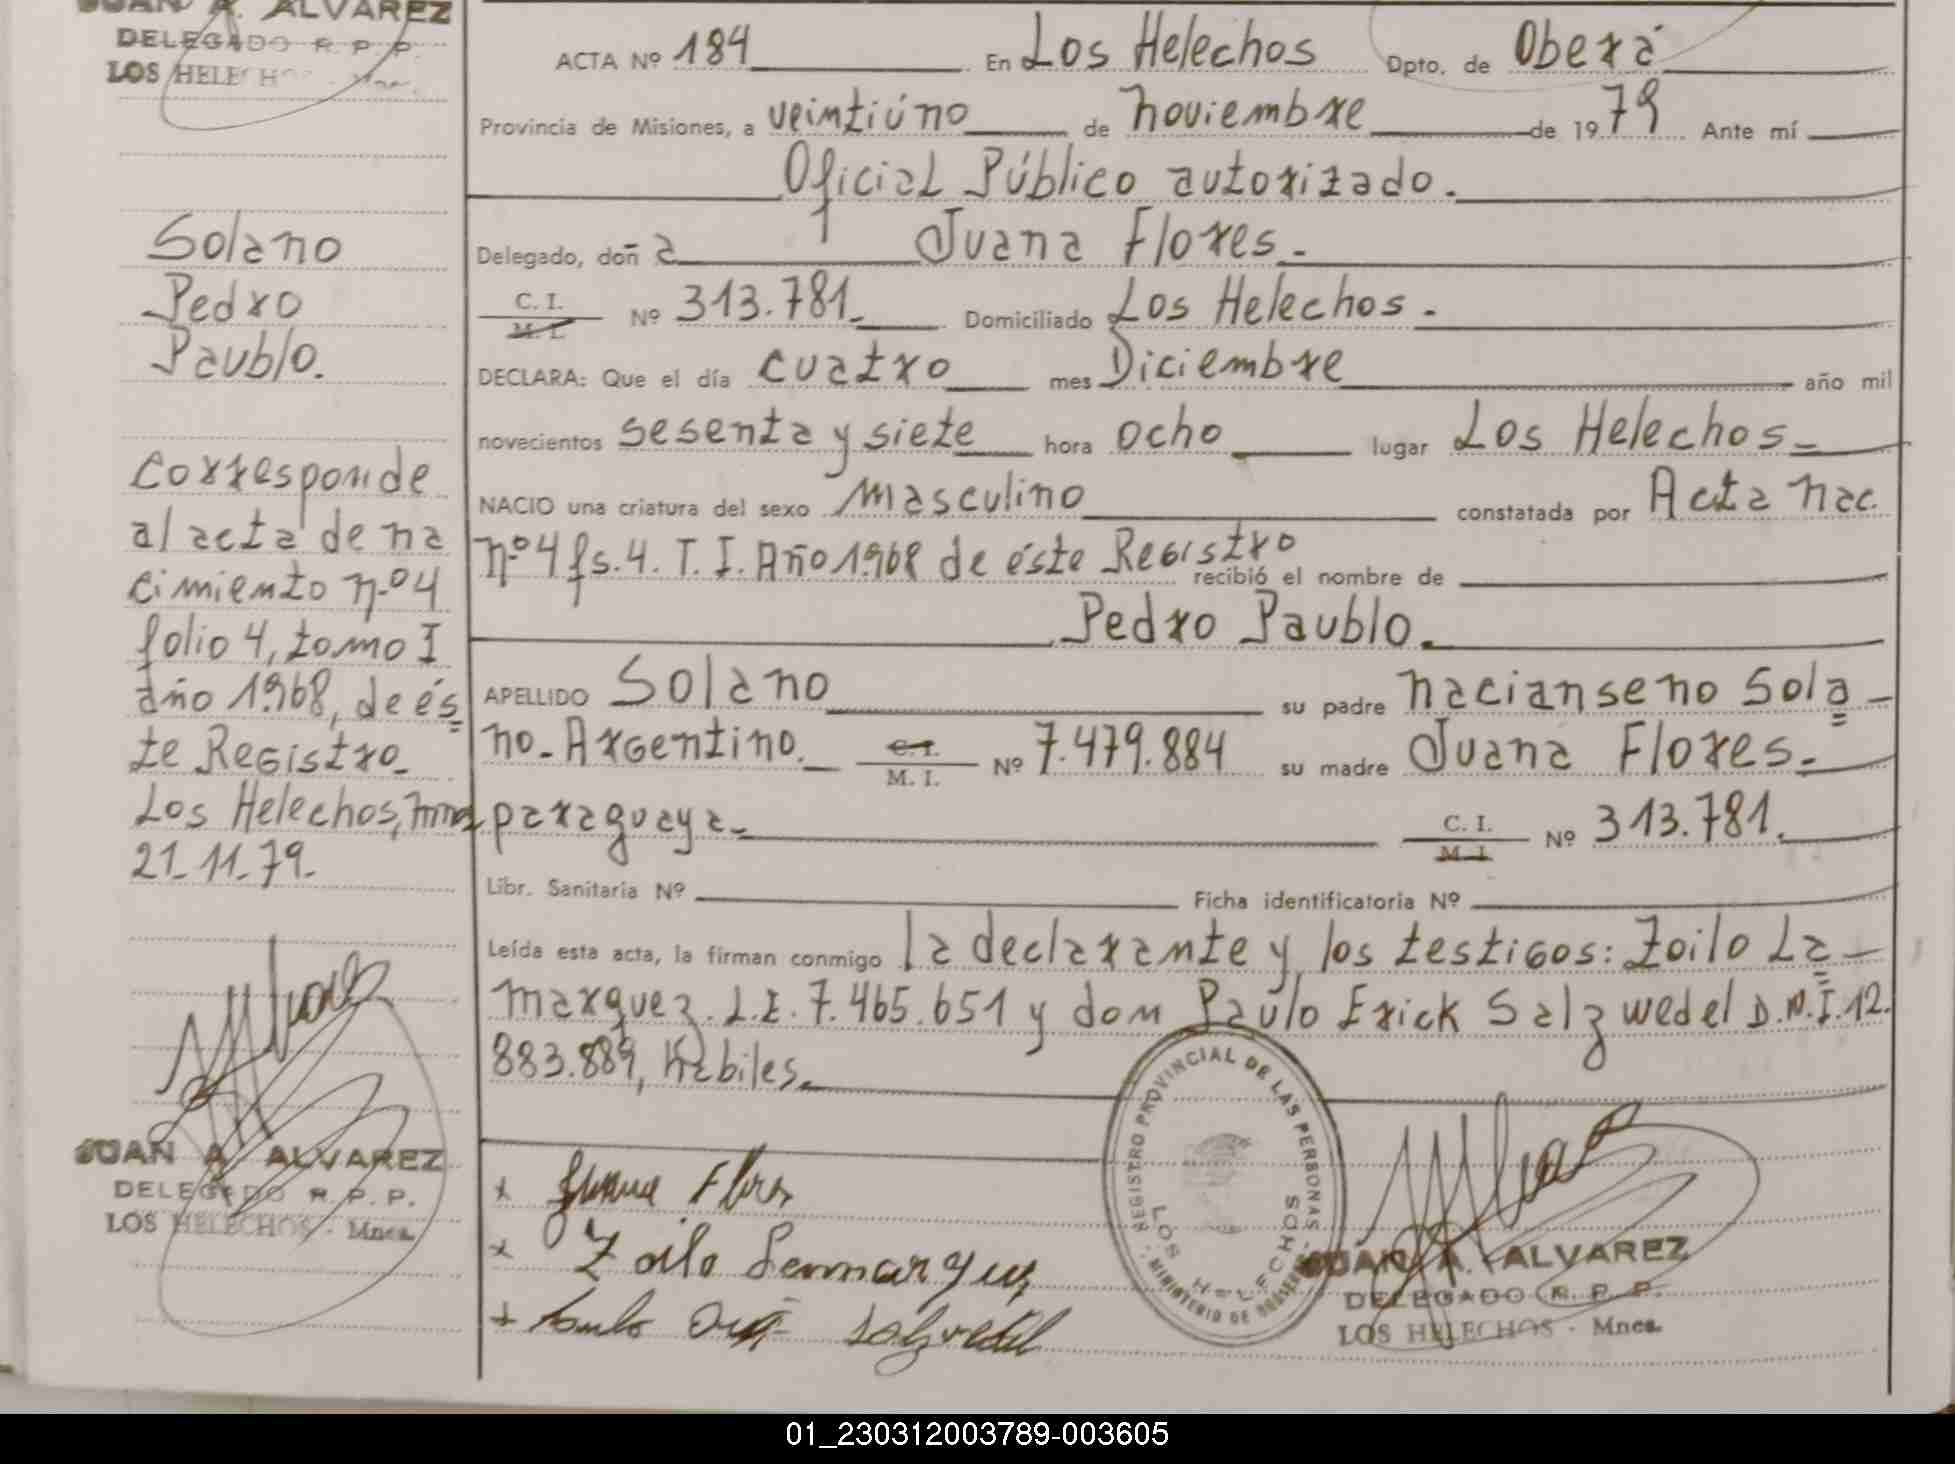 JUAN A. ALVAREZ
DELEGADO R. P. P.
LOS HELECHOS - Mnes.
Solano
Pedro
Paublo.
Corresponde
al acta de na
cimiento nº 4
folio 4, tomo I
año 1968, de és
te Registro
Los Helechos, Mnes
21-11-79.
JUAN A. ALVAREZ
DELEGADO R. P. P.
LOS HELECHOS - Mnes.
ACTA Nº 184 En Los Helechos Dpto. de Oberá
Provincia de Misiones, a veintiúno de noviembre de 1979 Ante mí
Oficial Público autorizado.
Delegado, doña Juana Flores.
C. I. M. I. Nº 313.781 Domiciliado Los Helechos.
DECLARA: Que el día cuatro mes Diciembre año mil
novecientos sesenta y siete hora ocho lugar Los Helechos
NACIO una criatura del sexo masculino constatada por Acta nac.
nº 4 fs. 4. T. I. Año 1.968 de éste Registro recibió el nombre de
Pedro Paublo.
APELLIDO Solano su padre nacianseno Sola
no- Argentino. C. I. M. I. Nº 7.479.884 su madre Juana Flores.
paraguaya C. I. M. I. Nº 313.781.
Libr. Sanitaria Nº Ficha identificatoria Nº
Leída esta acta, la firman conmigo la declarante y los testigos: Zoilo La
marquez. L.E. 7.465.651 y don Paulo Erick Salzwedel D.N.I. 12.
883.889, Habiles.
x Juana Flores
x Zoilo
+ Paulo
REGISTRO PROVINCIAL DE LAS PERSONAS
LOS HELECHOS
MINISTERIO DE GOBIERNO
JUAN A. ALVAREZ
DELEGADO R. P. P.
LOS HELECHOS - Mnes.
01_230312003789-003605